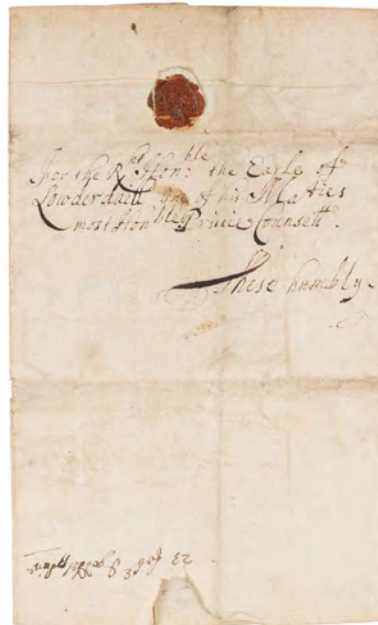 For the Rht Honble: the Earle of
Lowderdaill one of his Maties
most Honble Privie Counsell.
These humbly.
23